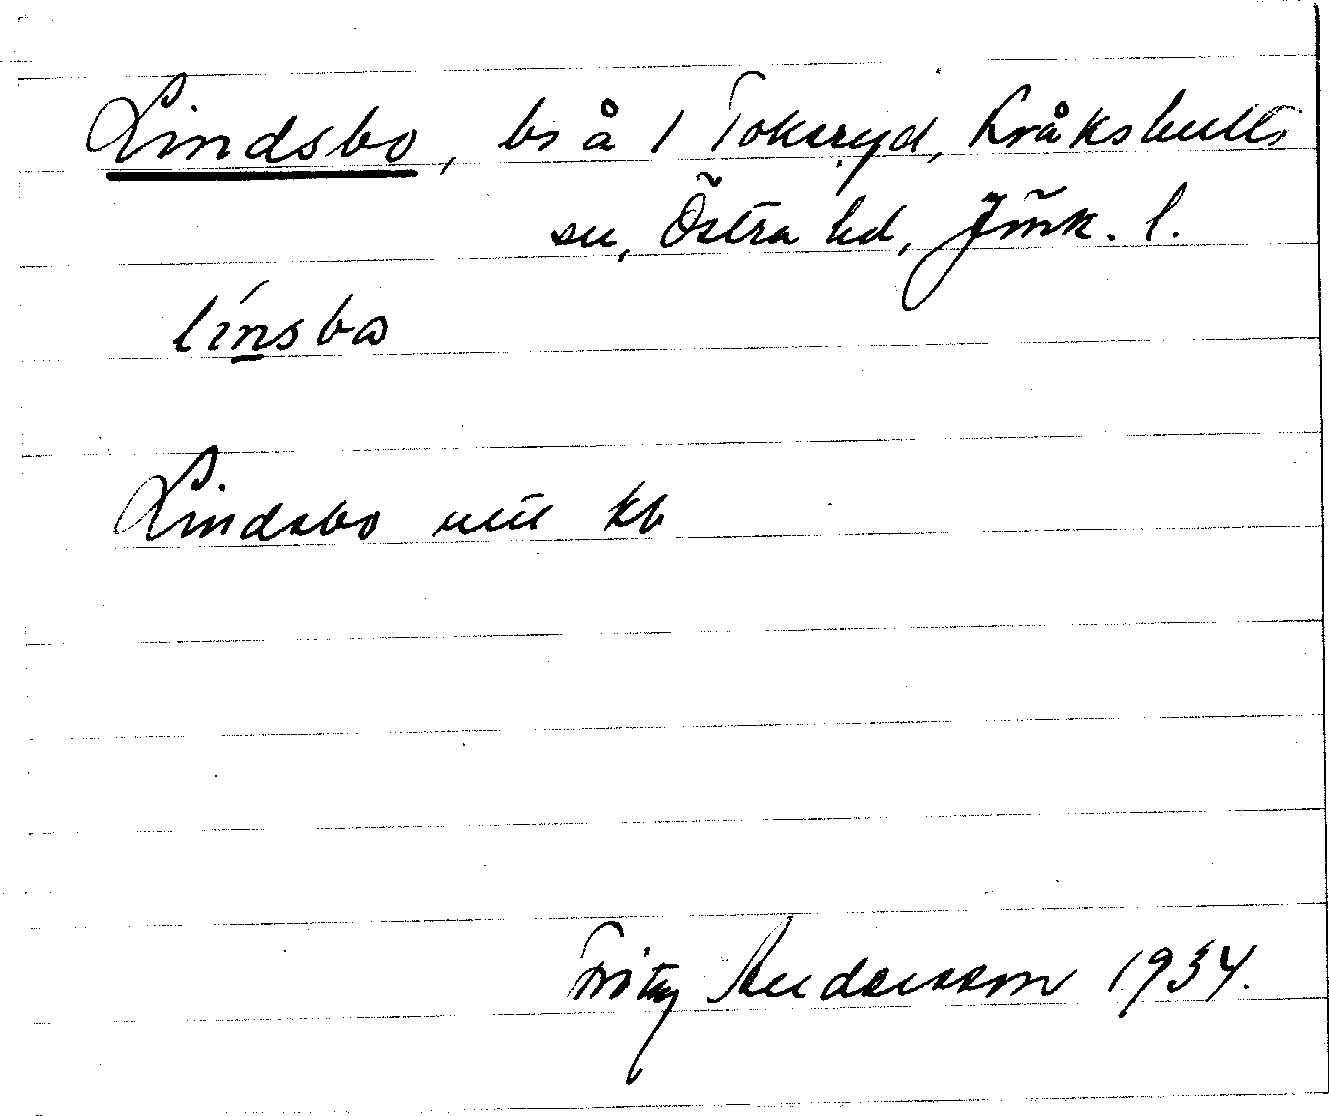 Lindsbo, bs å 1 Tokaryd, Kråkshults
sn, Östra hd, Jönk. l.
línsbo
Lindsbo utt kb
Fritz Andersson 1934.